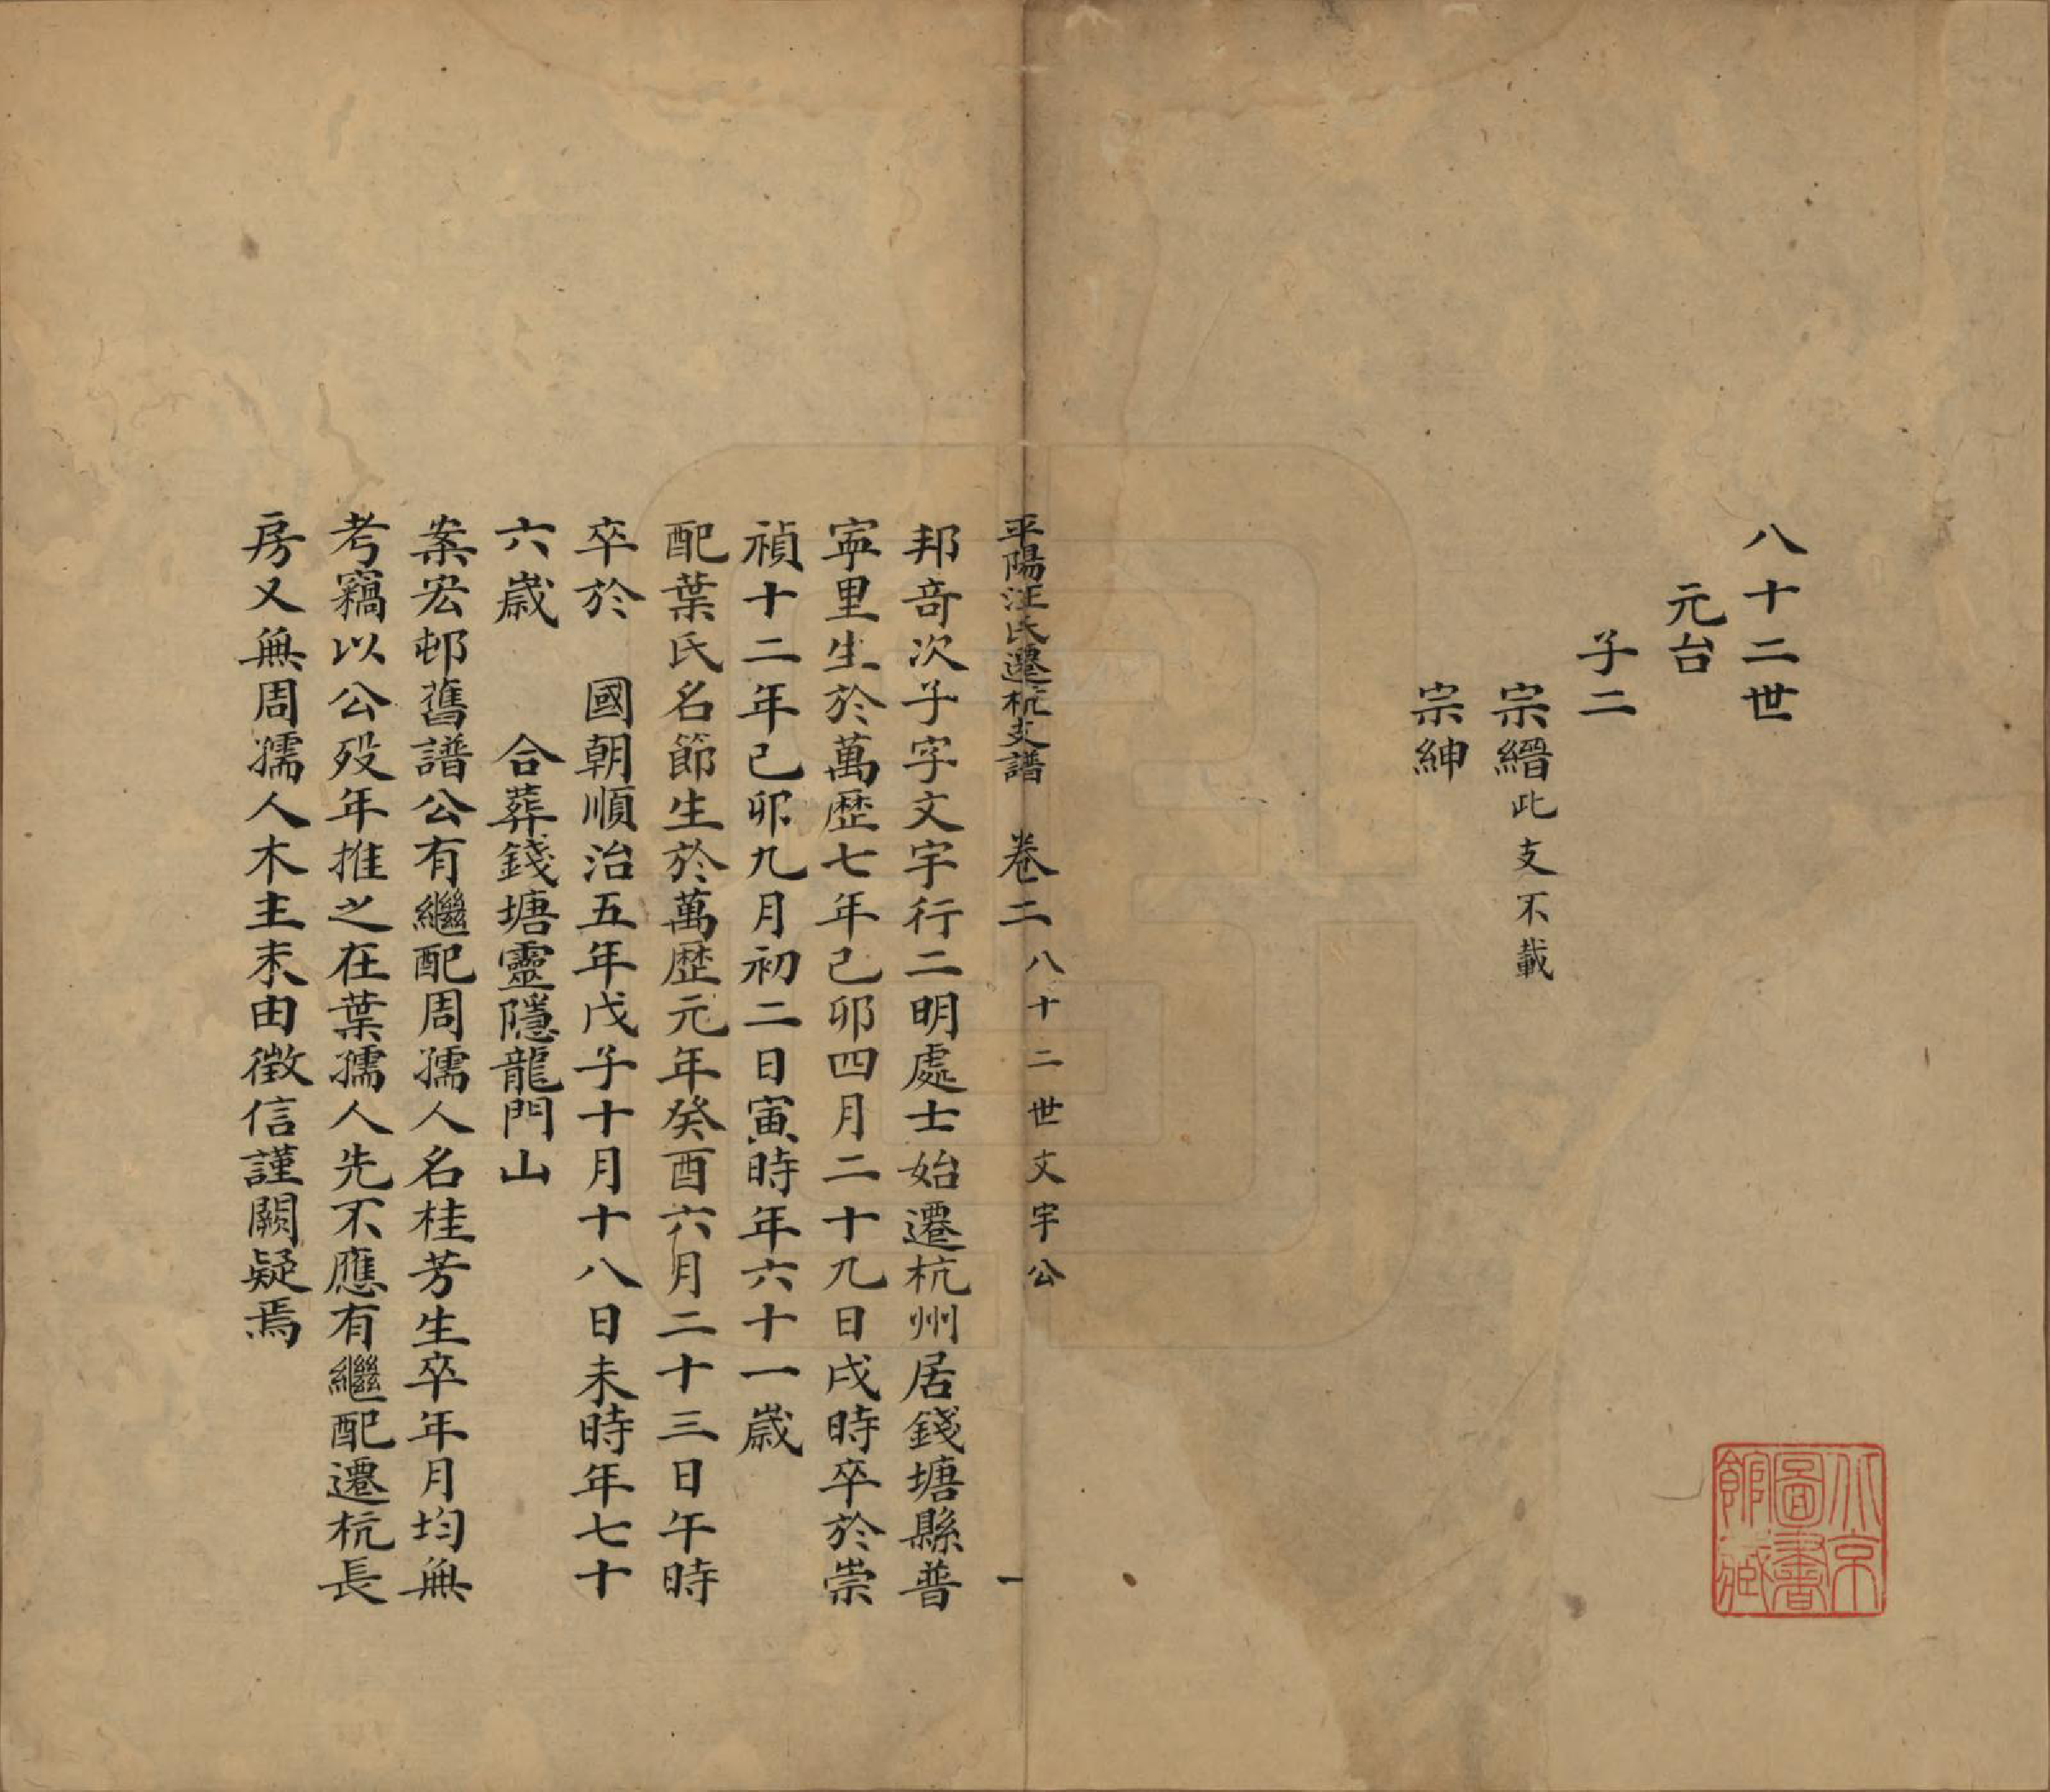 八十二世
元台
子二
宗縉此支不載
宗紳
北京圖書館藏
平陽汪氏遷杭支譜 卷二 八十二世文宇公 一
邦竒次子字文宇行二明處士始遷杭州居錢塘縣普
寍里生於萬歷七年己卯四月二十九日戌時卒於崇
禎十二年己卯九月初二日寅時年六十一歲
配葉氏名節生於萬歷元年癸酉六月二十三日午時
卒於 國朝順治五年戊子十月十八日未時年七十
六歲 合葬錢塘靈隱龍門山
案宏邨舊譜公有繼配周孺人名桂芳生卒年月均無
考竊以公歿年推之在葉孺人先不應有繼配遷杭長
房又無周孺人木主未由徵信謹闕疑焉